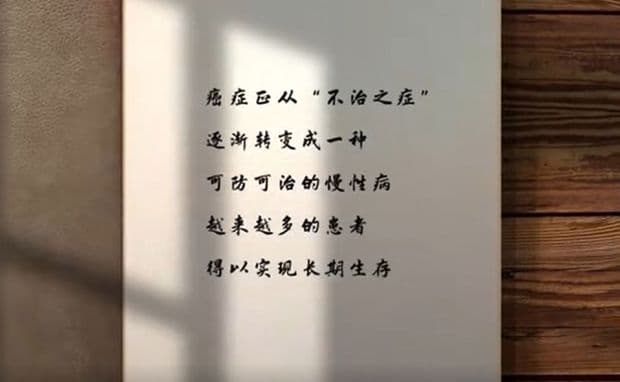 癌症正从“不治之症”
逐渐转变成一种
可防可治的慢性病
越来越多的患者
得以实现长期生存